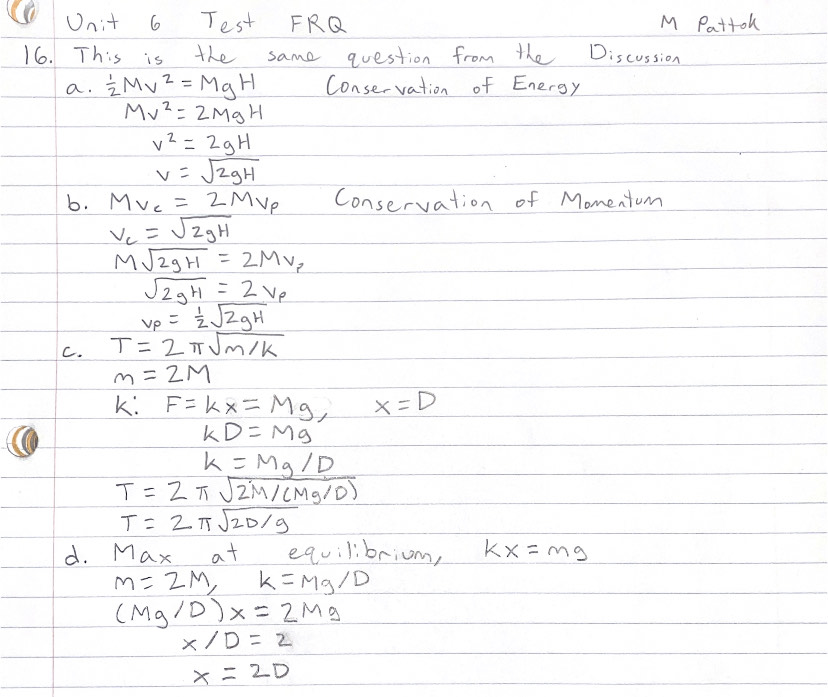 Unit 6 Test FRQ M Pattok
16. This is the same question from the Discussion
a. ½Mv² = MgH Conservation of Energy
Mv² = 2MgH
v² = 2gH
v = √2gH
b. Mvc = 2Mvp Conservation of Momentum
vc = √2gH
M√2gH = 2Mvp
√2gH = 2vp
vp = ½√2gH
c. T = 2π√m/k
m = 2M
k: F = kx = Mg, x = D
kD = Mg
k = Mg/D
T = 2π√2M/(Mg/D)
T = 2π√2D/g
d. Max at equilibrium, kx = mg
m = 2M, k = Mg/D
(Mg/D)x = 2Mg
x/D = 2
x = 2D